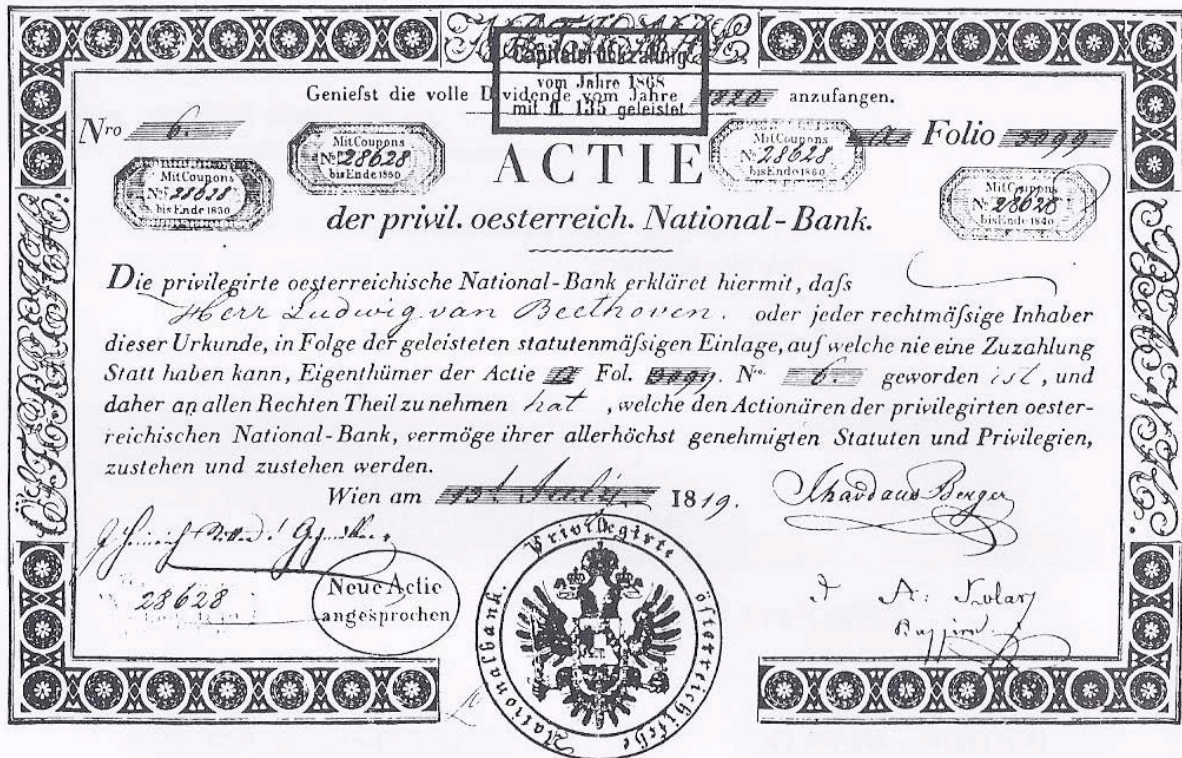 Capitalsrückzahlung
vom Jahre 1868
mit fl. 135 geleistet
Geniefst die volle Dividende vom Jahre 1820 anzufangen.
Nro 6.
a Folio 3299
MitCoupons
No. 28628
bis Ende 1860
MitCoupons
No. 28628
bis Ende 1860
MitCoupons
No. 28628
bis Ende 1830
MitCoupons
No. 28628
bis Ende 1840
ACTIE
der privil. oesterreich. National-Bank.
Die privilegirte oesterreichische National-Bank erkläret hiermit, dafs
Herr Ludwig van Beethoven. oder jeder rechtmäfsige Inhaber
dieser Urkunde, in Folge der geleisteten statutenmäfsigen Einlage, auf welche nie eine Zuzahlung
Statt haben kann, Eigenthümer der Actie a Fol. 3299. Nro. 6. geworden ist, und
daher an allen Rechten Theil zu nehmen hat, welche den Actionären der privilegirten oester-
reichischen National-Bank, vermöge ihrer allerhöchst genehmigten Statuten und Privilegien,
zustehen und zustehen werden.
Wien am 13t July 1819.
Berger
28628
Neue Actie
angesprochen
Privilegirte österreichische Nationalbank.